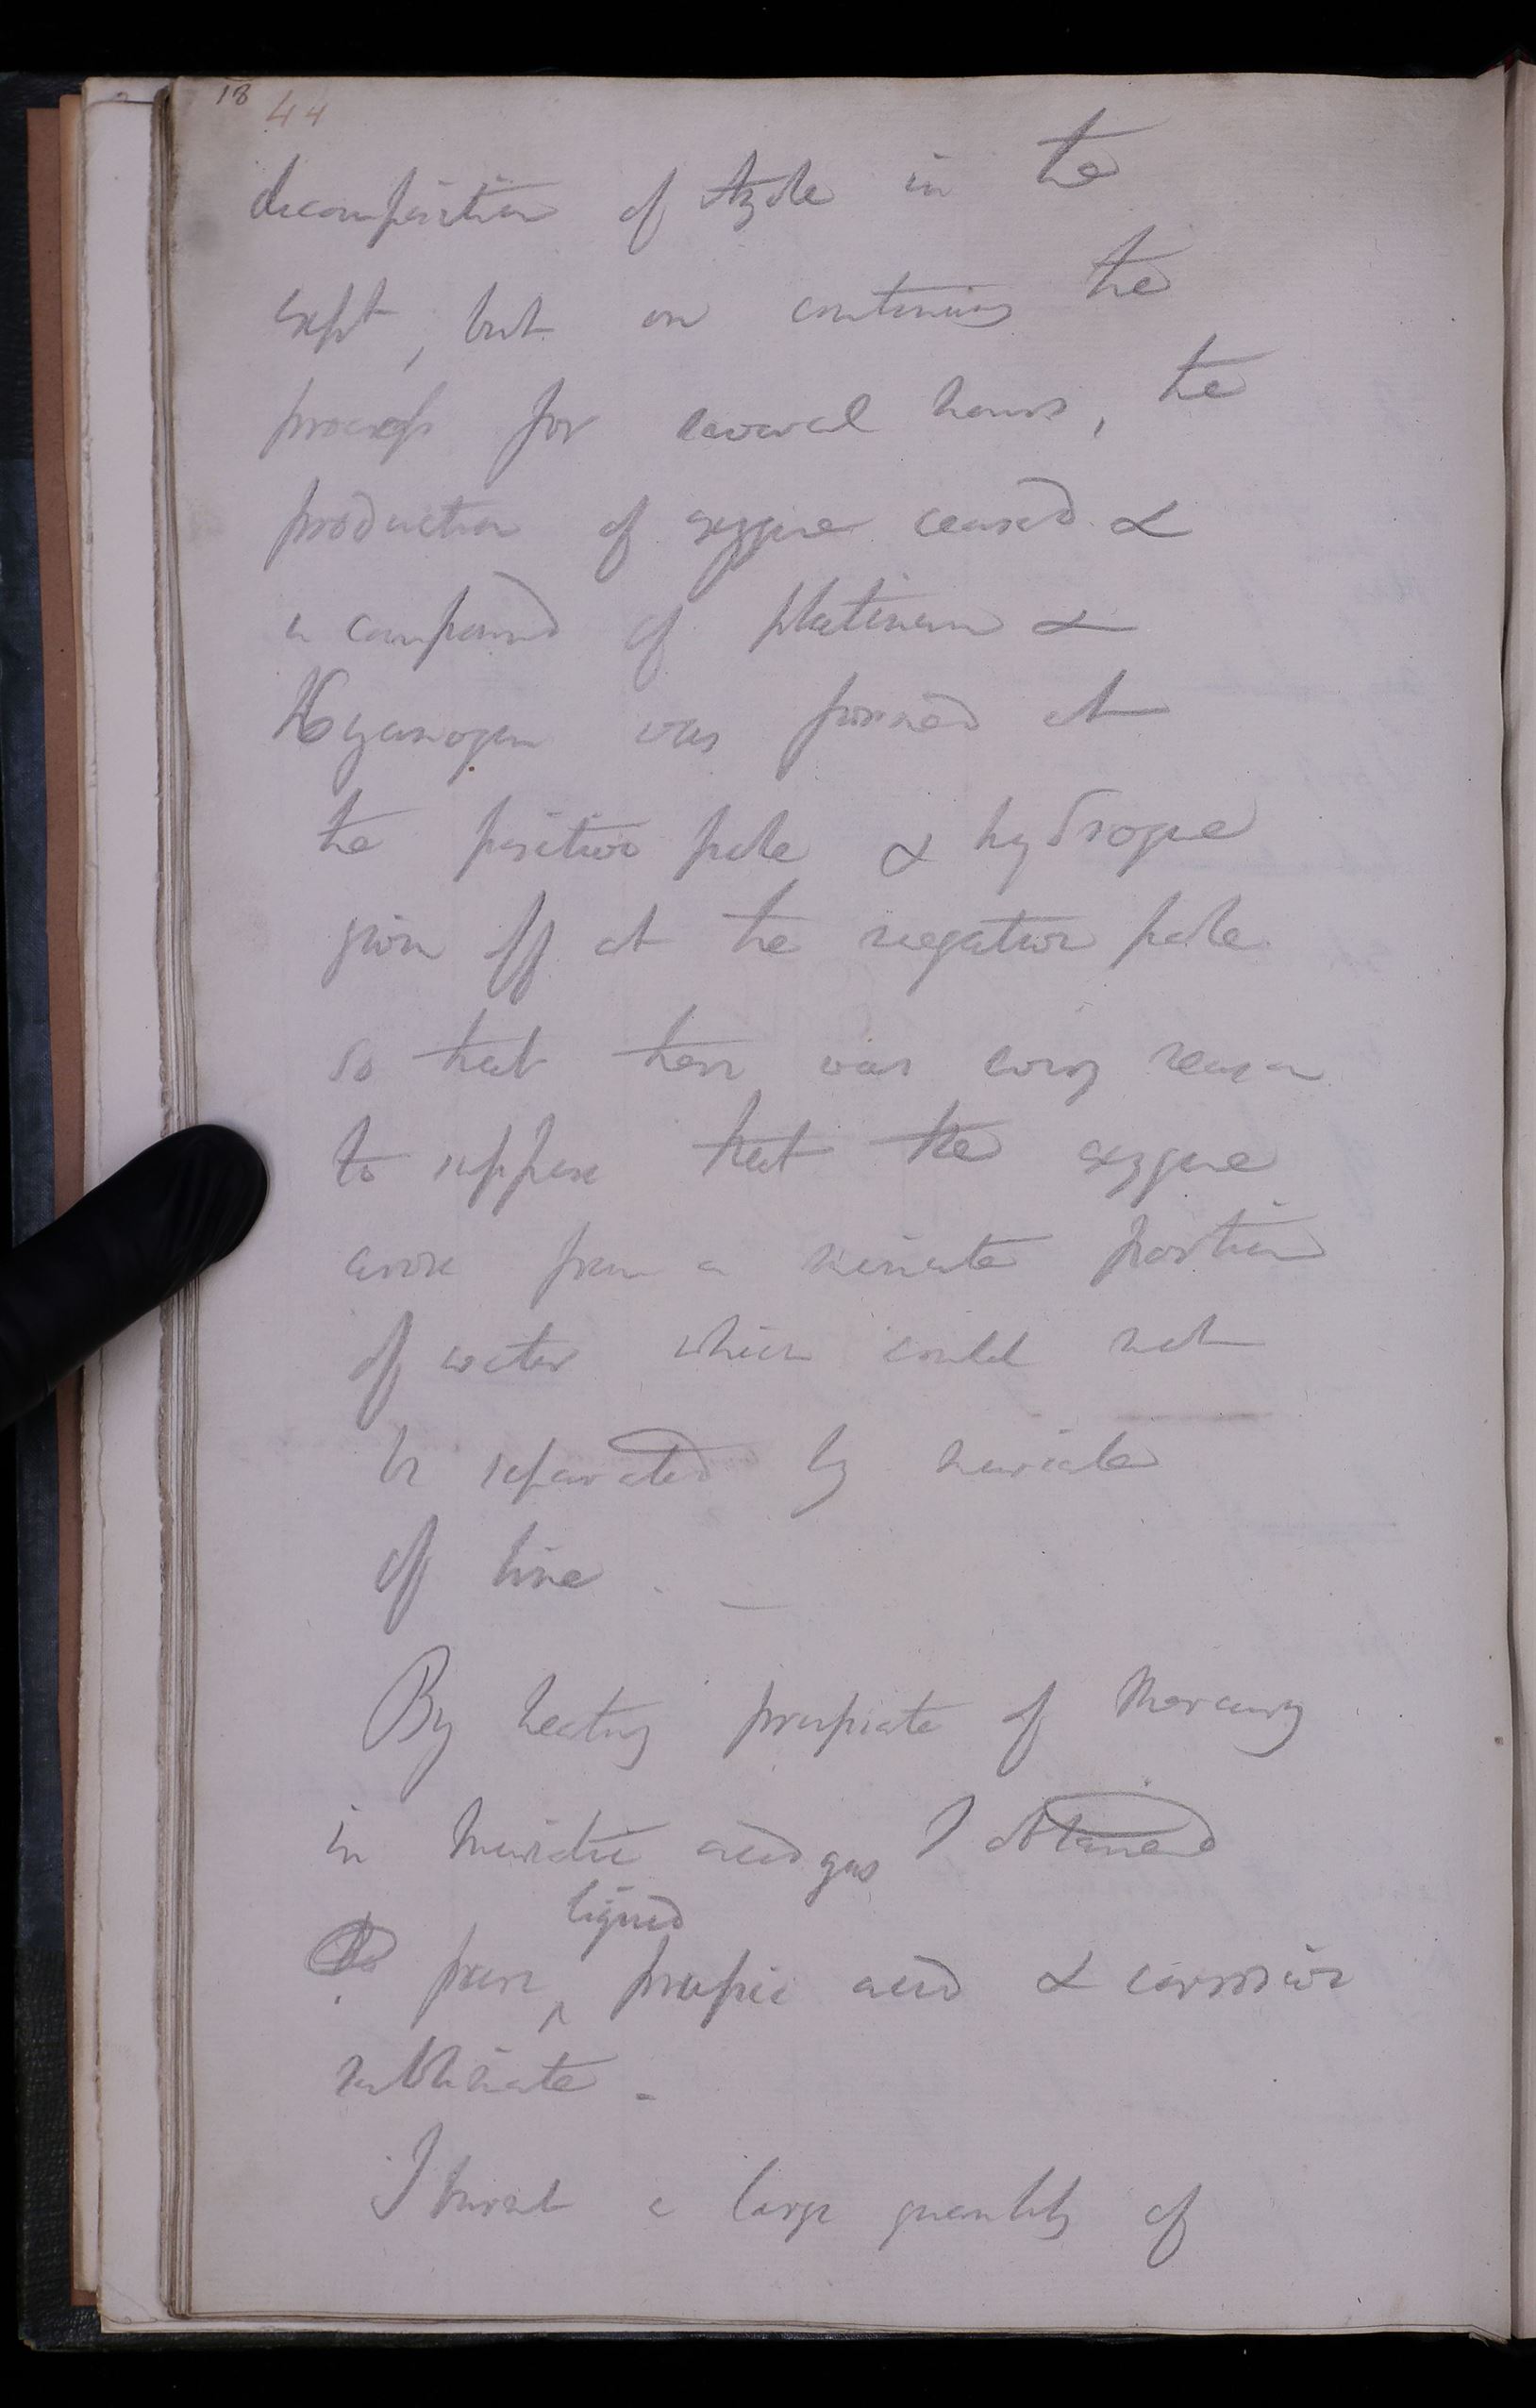 18 44
decomposition of Azote in the
expt, but on continuing the
process for several hours, the
production of oxygene ceased &
a compound of platinum &
Kyanogen was formed at
the positive pole & hydrogene
given off at the negative pole
so that there was every reason
to suppose that the oxygene
arose from a minute portion
of water which could not
be separated by muriate
of lime. —
By heating prussiate of Mercury
in Muriatic acid gas I obtained
liquid
pure ^ prussic acid & corrosive
sublimate -
I burnt a large quantity of